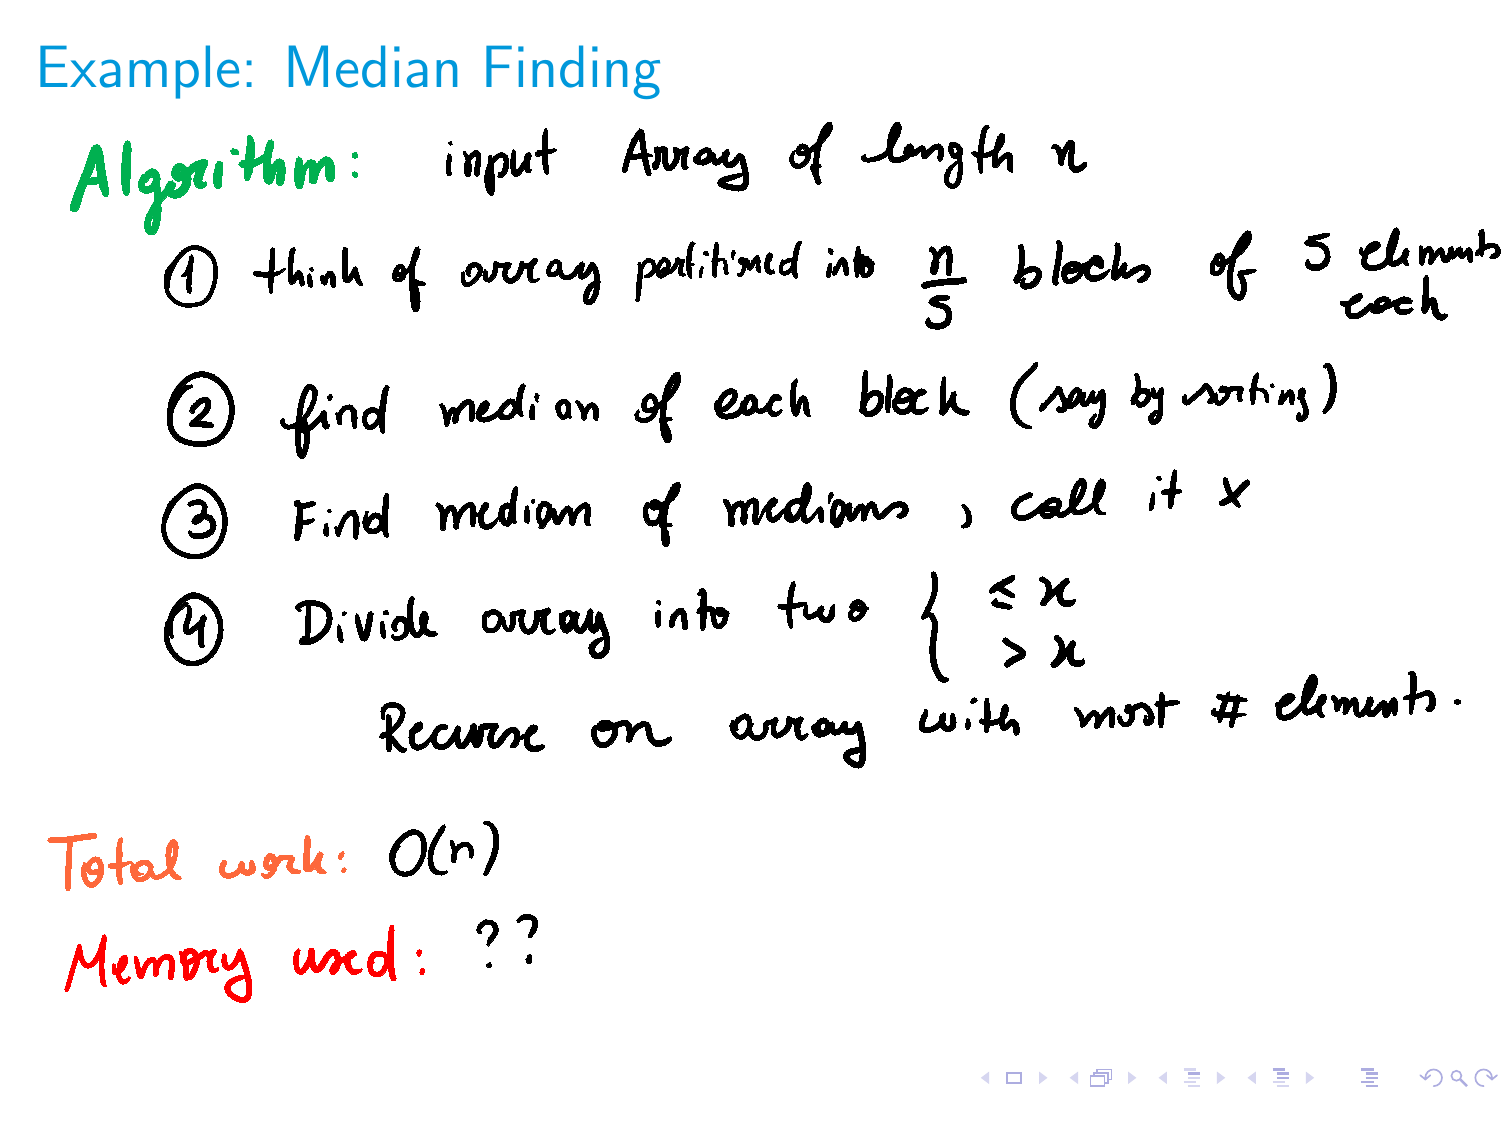 Example: Median Finding
Algorithm: input Array of length n
① think of array partitioned into n/5 blocks of 5 elements
each
② find median of each block (say by sorting)
③ Find median of medians, call it x
④ Divide array into two { ≤ x
> x
Recurse on array with most # elements.
Total work: O(n)
Memory used: ??